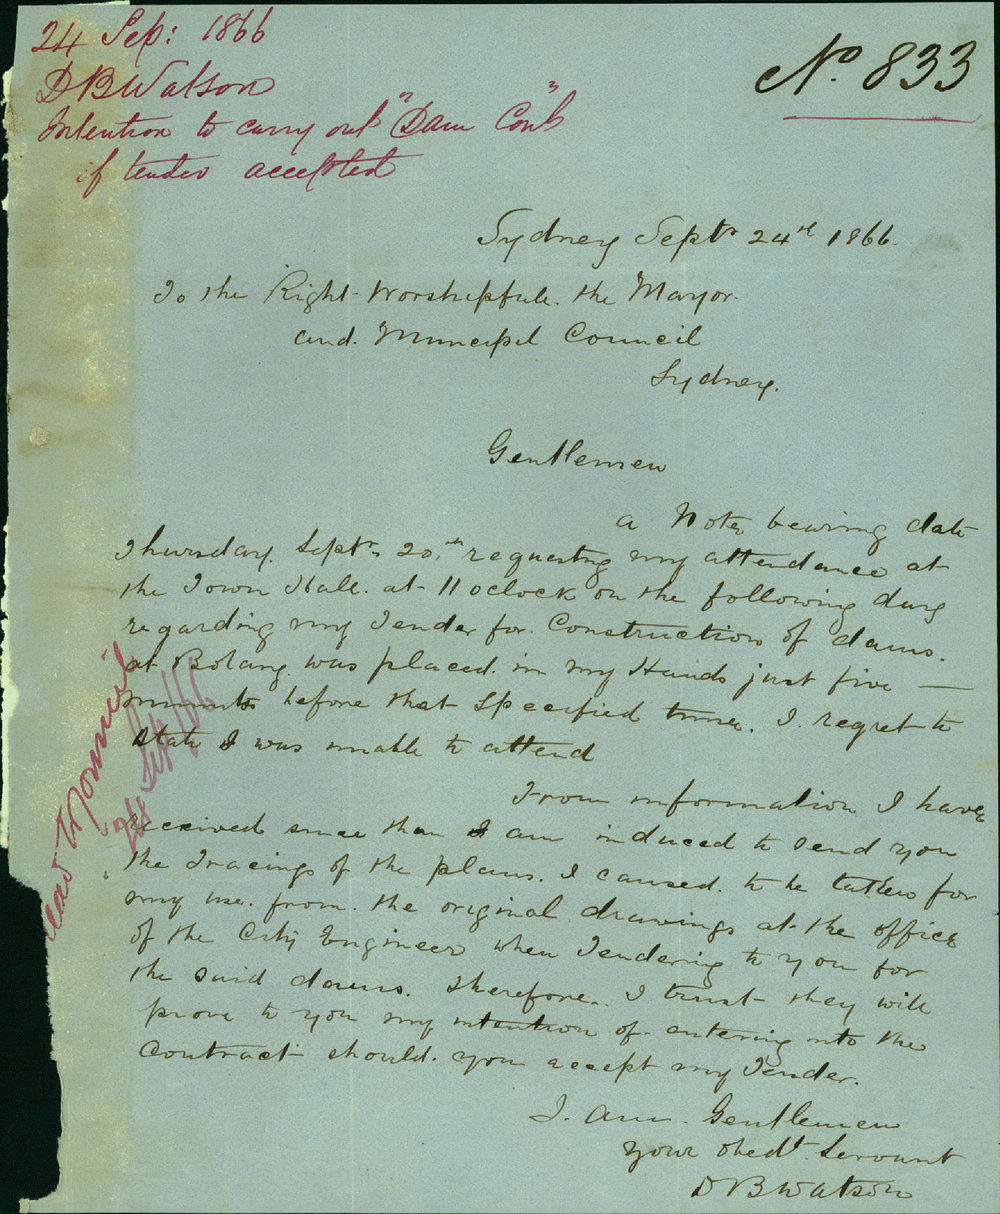 24 Sep: 1866
D B Watson
Intention to carry out "Dam Cont"
if tender accepted
No. 833
Sydney Septr 24th 1866.
To the Right Worshipfull. the Mayor.
and. Municipal Council
Sydney.
Gentlemen
a Note bearing date
Thursday. Septr 20.th requesting my attendance at
the Town Hall. at 11 oclock on the following day
regarding my Tender for. Construction of dams.
at Botany. was placed. in my Hands just five —
minuts before that specified time. I. regret to
state I was unable to attend
From information I have
received since then I am induced to send you
the Tracings of the plans. I caused. to be taken for
my use. from. the original drawings at the office
of the City Engineer when Tendering to you for
the said dams. therefore. I trust they will
prove to you my intention of entering into the
Contract should. you accept my Tender.
I. am. Gentlemen
your obedt. Servant
D B Watson
read Council
24 Sep /66